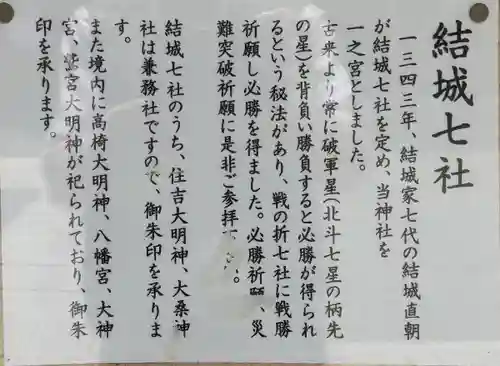 結城七社
一三四三年、結城家七代の結城直朝
が結城七社を定め、当神社を
一之宮としました。
古来より常に破軍星(北斗七星の柄先
の星)を背負い勝負すると必勝が得られ
るという秘法があり、戦の折七社に戦勝
祈願し必勝を得ました。必勝祈願、災
難突破祈願に是非ご参拝 い。
結城七社のうち、住吉大明神、大桑神
社は兼務社ですので、御朱印を承りま
す。
また境内に高椅大明神、八幡宮、大神
宮、鷲宮大明神が祀られており、御朱
印を承ります。